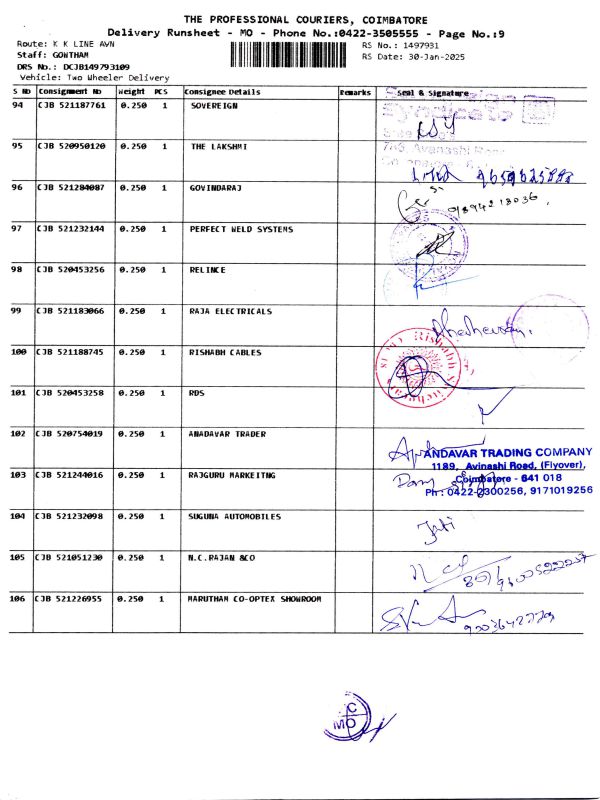 THE PROFESSIONAL COURIERS, COIMBATORE
Delivery Runsheet - MO - Phone No.:0422-3505555 - Page No.:9
Route: K K LINE AVN
RS No.: 1497931
Staff: GOWTHAM
RS Date: 30-Jan-2025
DRS No.: DCJB149793109
Vehicle: Two Wheeler Delivery
S No Consignment No Weight PCS Consignee Details Remarks Seal & Signature
94 CJB 521187761 0.250 1 SOVEREIGN
95 CJB 520950120 0.250 1 THE LAKSHMI
96 CJB 521284087 0.250 1 GOVINDARAJ
97 CJB 521232144 0.250 1 PERFECT WELD SYSTEMS
98 CJB 520453256 0.250 1 RELINCE
99 CJB 521183066 0.250 1 RAJA ELECTRICALS
100 CJB 521188745 0.250 1 RISHABH CABLES
101 CJB 520453258 0.250 1 RDS
102 CJB 520754019 0.250 1 ANADAVAR TRADER
ANDAVAR TRADING COMPANY
1189, Avinashi Road, (Flyover),
103 CJB 521244016 0.250 1 RAJGURU MARKEITNG
Coimbatore - 641 018
Ph : 0422-2300256, 9171019256
104 CJB 521232098 0.250 1 SUGUNA AUTOMOBILES
105 CJB 521051230 0.250 1 N.C.RAJAN &CO
106 CJB 521226955 0.250 1 MARUTHAM CO-OPTEX SHOWROOM
C
MO